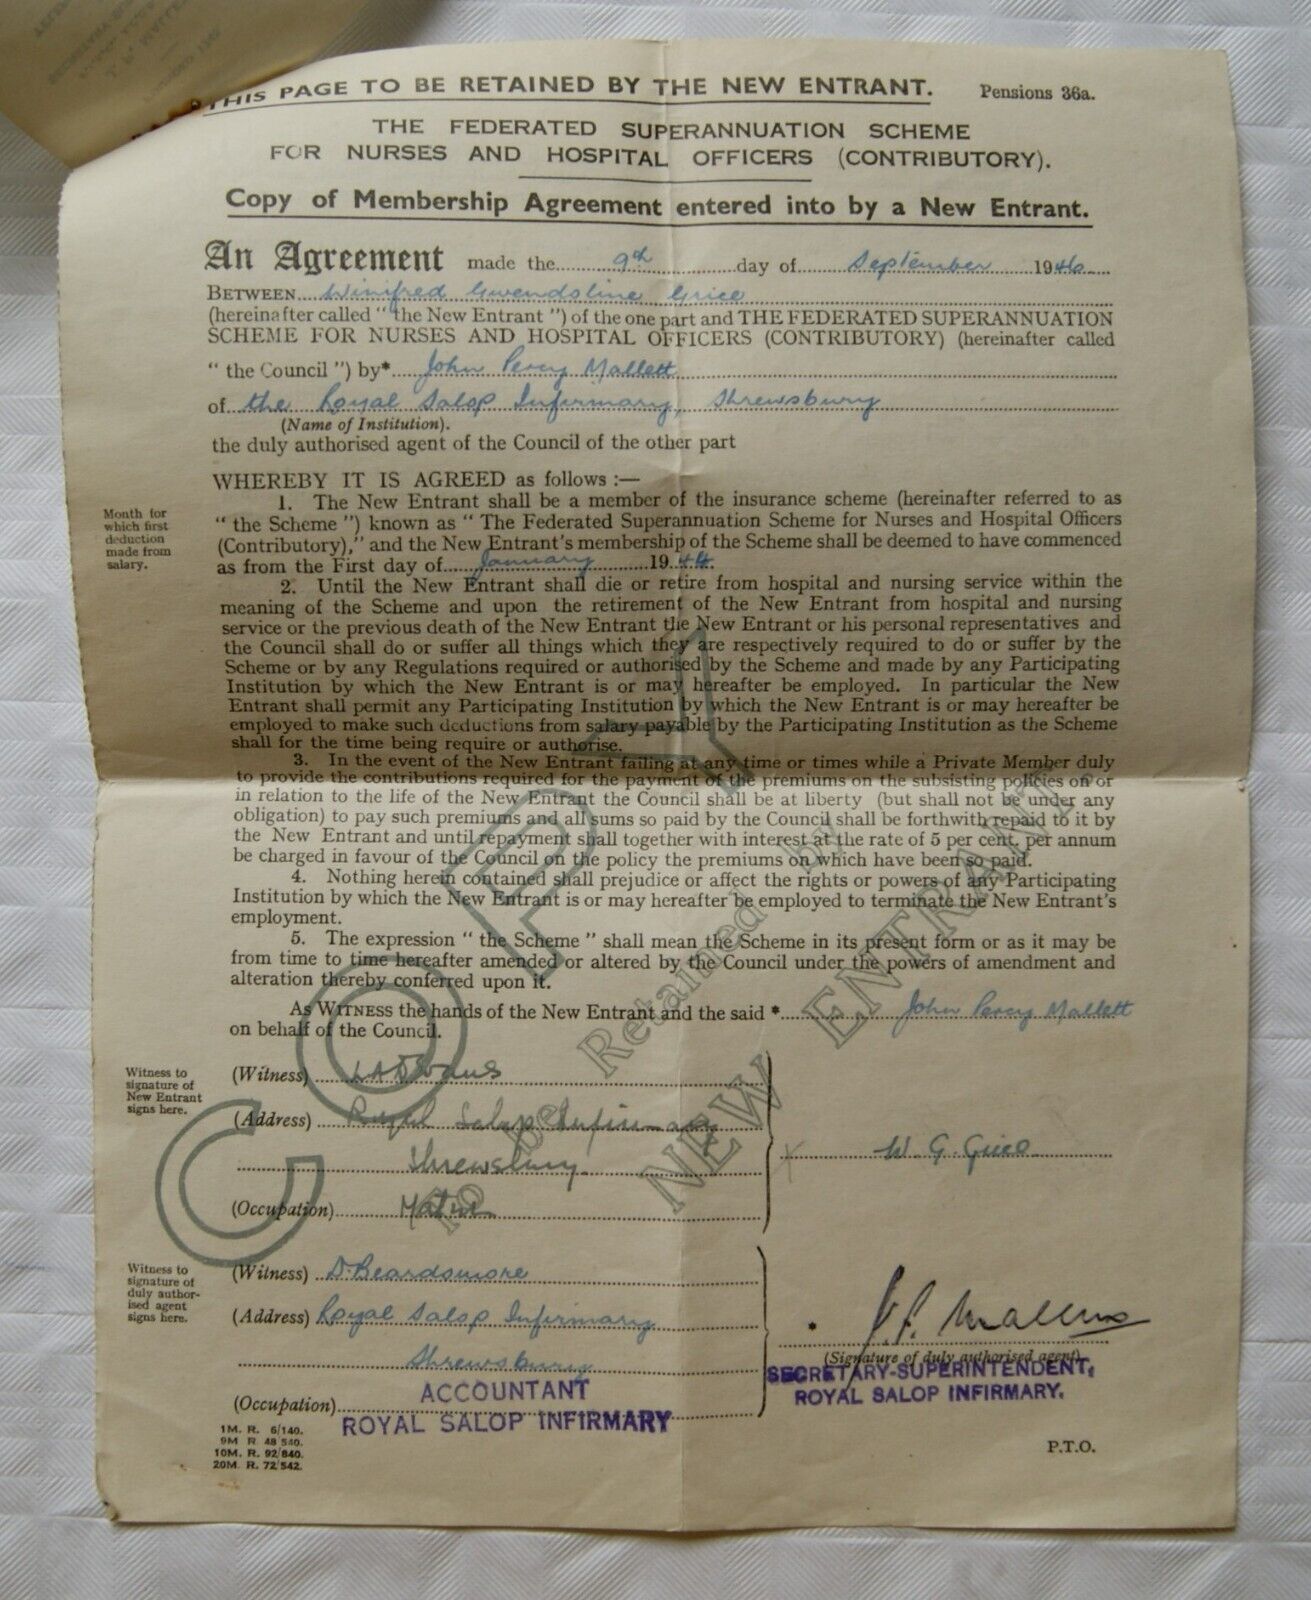 THIS PAGE TO BE RETAINED BY THE NEW ENTRANT.
Pensions 36a.
THE FEDERATED SUPERANNUATION SCHEME
FOR NURSES AND HOSPITAL OFFICERS (CONTRIBUTORY).
Copy of Membership Agreement entered into by a New Entrant.
An Agreement made the 9th day of September 1946
BETWEEN Winifred Gwendoline Grice
(hereinafter called " the New Entrant ") of the one part and THE FEDERATED SUPERANNUATION
SCHEME FOR NURSES AND HOSPITAL OFFICERS (CONTRIBUTORY) (hereinafter called
" the Council ") by* John Percy Mallett
of the Royal Salop Infirmary, Shrewsbury
(Name of Institution).
the duly authorised agent of the Council of the other part
WHEREBY IT IS AGREED as follows :—
1. The New Entrant shall be a member of the insurance scheme (hereinafter referred to as
" the Scheme ") known as " The Federated Superannuation Scheme for Nurses and Hospital Officers
(Contributory)," and the New Entrant's membership of the Scheme shall be deemed to have commenced
as from the First day of January 1944.
Month for
which first
deduction
made from
salary.
2. Until the New Entrant shall die or retire from hospital and nursing service within the
meaning of the Scheme and upon the retirement of the New Entrant from hospital and nursing
service or the previous death of the New Entrant the New Entrant or his personal representatives and
the Council shall do or suffer all things which they are respectively required to do or suffer by the
Scheme or by any Regulations required or authorised by the Scheme and made by any Participating
Institution by which the New Entrant is or may hereafter be employed. In particular the New
Entrant shall permit any Participating Institution by which the New Entrant is or may hereafter be
employed to make such deductions from salary payable by the Participating Institution as the Scheme
shall for the time being require or authorise.
3. In the event of the New Entrant failing at any time or times while a Private Member duly
to provide the contributions required for the payment of the premiums on the subsisting policies on or
in relation to the life of the New Entrant the Council shall be at liberty (but shall not be under any
obligation) to pay such premiums and all sums so paid by the Council shall be forthwith repaid to it by
the New Entrant and until repayment shall together with interest at the rate of 5 per cent. per annum
be charged in favour of the Council on the policy the premiums on which have been so paid.
4. Nothing herein contained shall prejudice or affect the rights or powers of any Participating
Institution by which the New Entrant is or may hereafter be employed to terminate the New Entrant's
employment.
5. The expression " the Scheme " shall mean the Scheme in its present form or as it may be
from time to time hereafter amended or altered by the Council under the powers of amendment and
alteration thereby conferred upon it.
As WITNESS the hands of the New Entrant and the said * John Percy Mallett
on behalf of the Council.
COPY
To be Retained by
NEW ENTRANT.
Witness to
signature of
New Entrant
signs here.
(Witness)
(Address) Royal Salop Infirmary
Shrewsbury
(Occupation) Matron
X W. G. Grice
Witness to
signature of
duly author-
ised agent
signs here.
(Witness) D. Beardsmore
(Address) Royal Salop Infirmary
Shrewsbury
(Occupation) ACCOUNTANT
ROYAL SALOP INFIRMARY
* J. P. Mallett
(Signature of duly authorised agent)
SECRETARY-SUPERINTENDENT,
ROYAL SALOP INFIRMARY.
1M. R. 6/140.
9M R 48 540.
10M. R. 92/840.
20M. R. 72/542.
P.T.O.